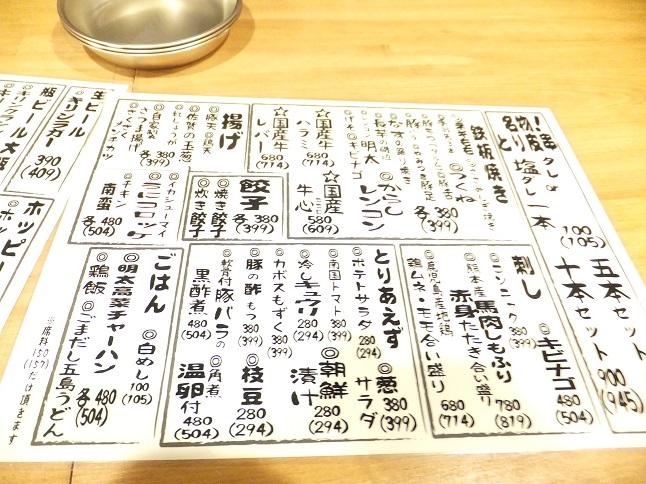 名物!串
とり皮
タレ or 塩タレ
一本 100
(105)
五本セット
十本セット 900
(945)
鉄板焼き
◎つくね
各380
(399)
◎からし
レンコン
明太
☆国産牛
ハラミ
680
(714)
☆国産牛
レバー
680
(714)
☆国産
牛心
580
(609)
揚げ
◎豚天 ◎鶏天
◎佐賀の玉葱
紅しょうが
◎自家製
さつま揚げ
各380
(399)
イカシューマイ
◎うにコロッケ
チキン
南蛮
480
(504)
餃子
◎焼き餃子
◎炊き餃子
各380
(399)
刺し
◎キビナゴ
480
(504)
380
(399)
◎熊本産
馬肉しもふり
赤身たたき合い盛り
780
(819)
◎鹿児島産地鶏
鶏ムネ・モモ合い盛り
680
(714)
とりあえず
◎ポテトサラダ
280
(294)
◎葱サラダ
380
(399)
◎南国トマト
380
(399)
◎朝鮮漬け
280
(294)
◎冷しキュウリ
280
(294)
◎カボスもずく
380
(399)
◎豚の酢もつ
380
(399)
◎枝豆
280
(294)
◎軟骨付豚バラの
黒酢煮
480
(504)
◎角煮
温卵付
480
(504)
ごはん
◎白めし
100
(105)
◎明太高菜チャーハン
◎鶏飯
◎ごまだし五島うどん
各480
(504)
生ビール
キリンラガー
瓶ビール大瓶
390
(409)
ホッピー
※席料150(157)だけ頂きます